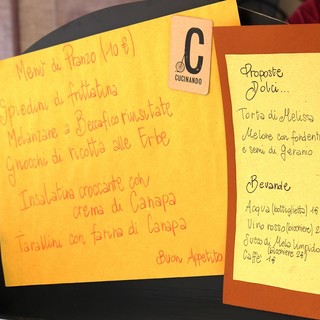 Menù di Pranzo (10 €)
Spiedini di fruttatina
Melanzane a Beccafico rivisitate
Gnocchi di ricotta alle Erbe
Insalatina croccante con
crema di Canapa
Tarallini con farina di Canapa
Buon Appetito
C
CUCINANDO
Proposte
Dolci...
Torta di Melissa
Melone con fondent
e semi di Geranio
Bevande
Acqua (bottiglietta) 1€
Vino rosso (bicchiere) 2
Succo di Mela Limpido
(bicchiere 2€)
Caffè 1€